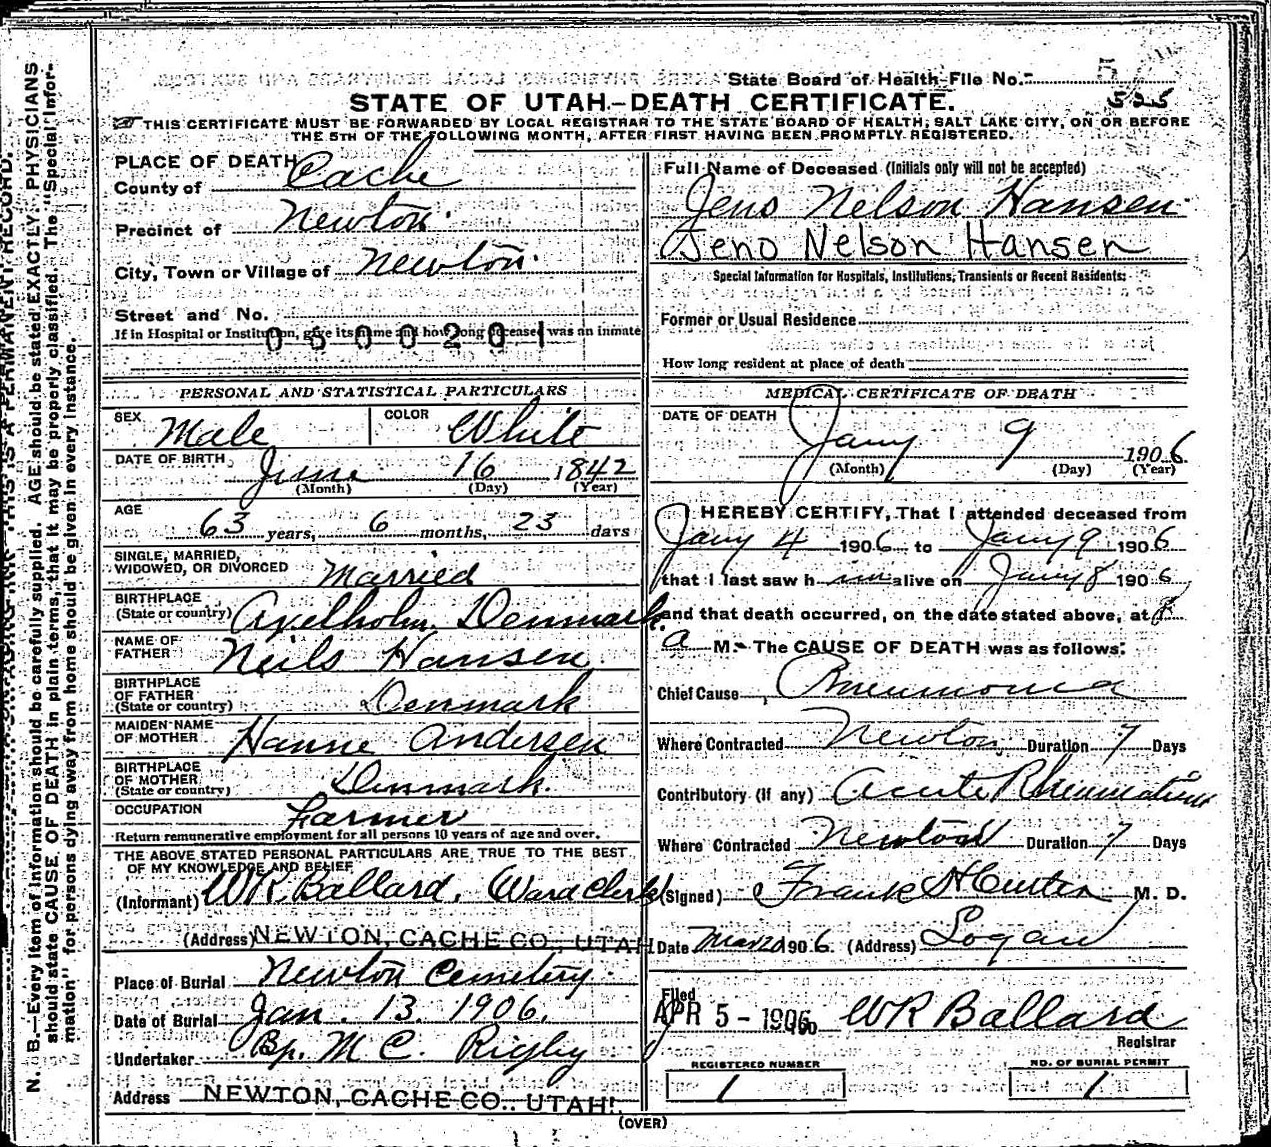 State Board of Health-File No. 5
525
STATE OF UTAH.-DEATH CERTIFICATE.
THIS CERTIFICATE MUST BE FORWARDED BY LOCAL REGISTRAR TO THE STATE BOARD OF HEALTH, SALT LAKE CITY, ON OR BEFORE
THE 5TH OF THE FOLLOWING MONTH, AFTER FIRST HAVING BEEN PROMPTLY REGISTERED.
N. B.—Every item of information should be carefully supplied. AGE should be stated EXACTLY. PHYSICIANS
should state CAUSE OF DEATH in plain terms, that it may be properly classified. The "Special Infor-
mation" for persons dying away from home should be given in every instance.
THIS IS A PERMANENT RECORD.
PLACE OF DEATH
County of Cache
Precinct of Newton
City, Town or Village of Newton
Street and No.
If in Hospital or Institution, give its name and how long deceased was an inmate
0500201
PERSONAL AND STATISTICAL PARTICULARS
SEX Male COLOR White
DATE OF BIRTH June 16 1842
(Month) (Day) (Year)
AGE 63 years, 6 months, 23 days
SINGLE, MARRIED,
WIDOWED, OR DIVORCED Married
BIRTHPLACE
(State or country) Denmark
NAME OF
FATHER Neils Hansen
BIRTHPLACE
OF FATHER
(State or country) Denmark
MAIDEN NAME
OF MOTHER Hanne Andersen
BIRTHPLACE
OF MOTHER
(State or country) Denmark.
OCCUPATION Farmer
Return remunerative employment for all persons 10 years of age and over.
THE ABOVE STATED PERSONAL PARTICULARS ARE TRUE TO THE BEST
OF MY KNOWLEDGE AND BELIEF
(Informant) WR Ballard. Ward Clerk
(Address) NEWTON, CACHE CO., UTAH
Place of Burial Newton Cemetery
Date of Burial Jan. 13. 1906.
Undertaker Bp. M C. Rigby
Address NEWTON, CACHE CO., UTAH.
Full Name of Deceased (Initials only will not be accepted)
Jens Nelson Hansen
Jeno Nelson Hansen
Special Information for Hospitals, Institutions, Transients or Recent Residents:
Former or Usual Residence
How long resident at place of death
MEDICAL CERTIFICATE OF DEATH
DATE OF DEATH
Jany 9 1906
(Month) (Day) (Year)
I HEREBY CERTIFY, That I attended deceased from
Jany 4 1906 to Jany 9 1906
that I last saw him alive on Jany 8 1906,
and that death occurred, on the date stated above, at 8
a M. The CAUSE OF DEATH was as follows:
Chief Cause Pneumonia
Where Contracted Newton Duration 7 Days
Contributory (if any) Acute Rheumatism
Where Contracted Newton Duration 7 Days
(Signed) Frank M. D.
Date 1906. (Address) Logan
Filed
APR 5 - 1906 190 WR Ballard
Registrar
REGISTERED NUMBER
1
NO. OF BURIAL PERMIT
1
(OVER)